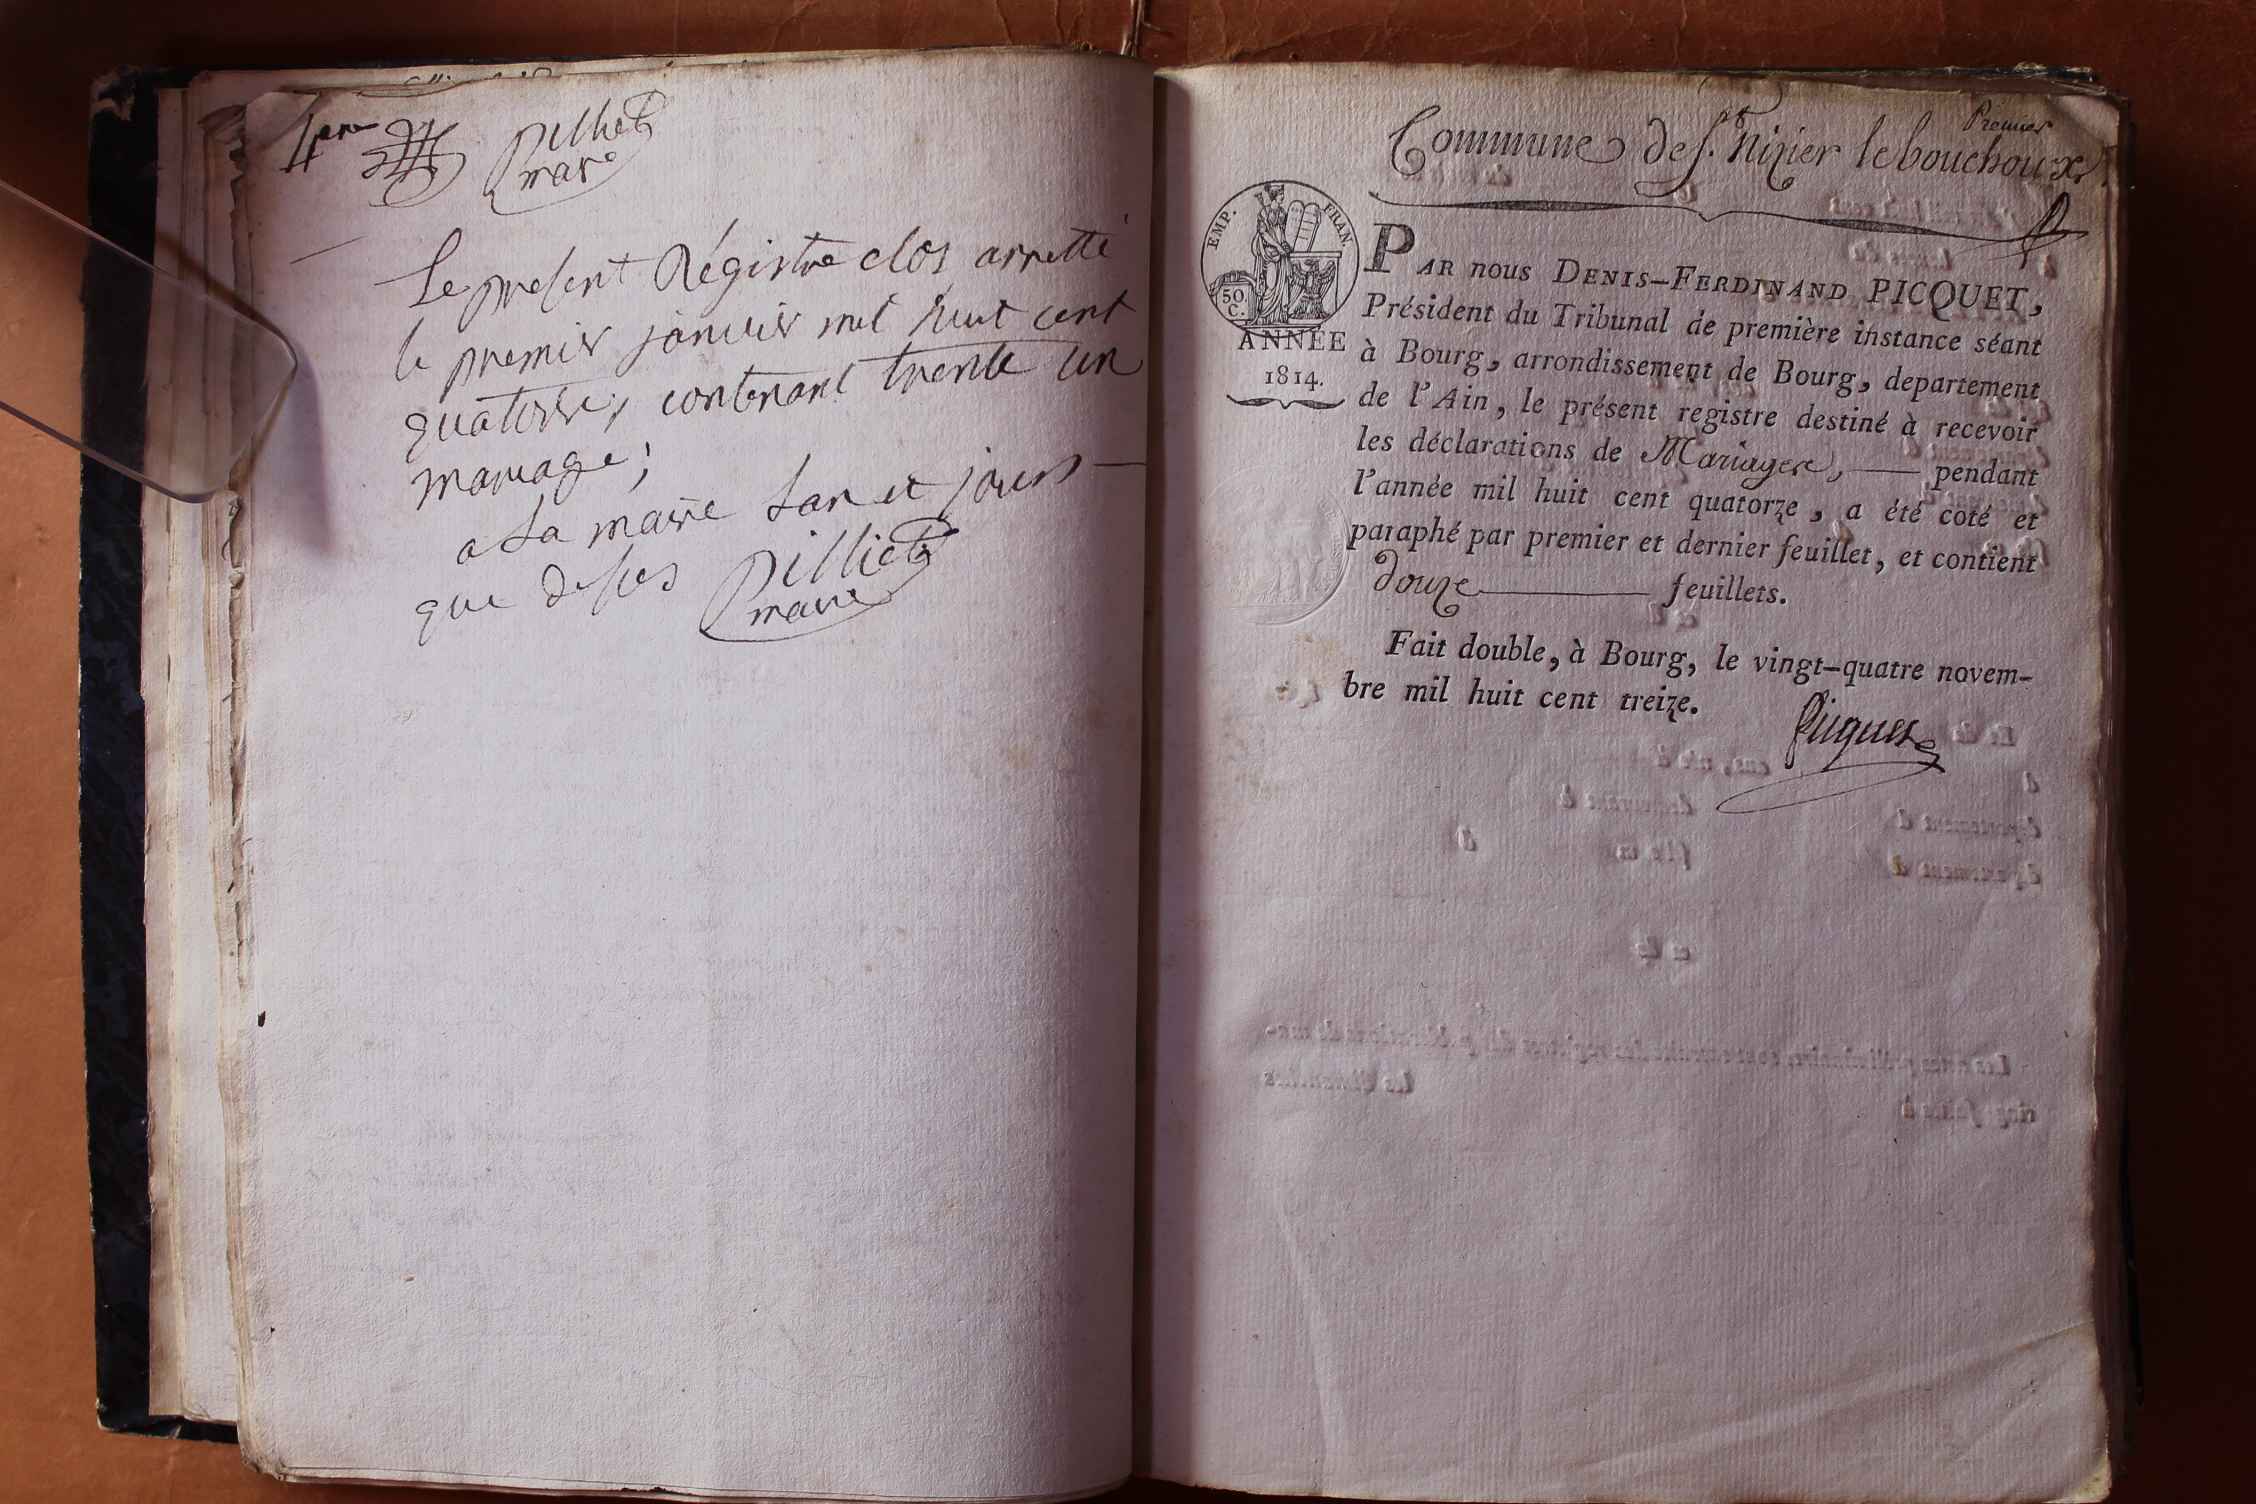 Pilliet
maire
Le present Régistre clos arretté
le premier janvier mil huit cent
quatorze, contenant trente un
mariage;
a La mairie Lan et jours
que dessus Pilliet
maire
Premier
Commune de St. Nizier le bouchoux
EMP. FRAN.
50 C.
ANNÉE
1814.
PAR nous DENIS-FERDINAND PICQUET,
Président du Tribunal de première instance séant
à Bourg, arrondissement de Bourg, departement
de l'Ain, le présent registre destiné à recevoir
les déclarations de Mariages, pendant
l'année mil huit cent quatorze, a été coté et
paraphé par premier et dernier feuillet, et contient
douze feuillets.
Fait double, à Bourg, le vingt-quatre novem-
bre mil huit cent treize.
Picquet